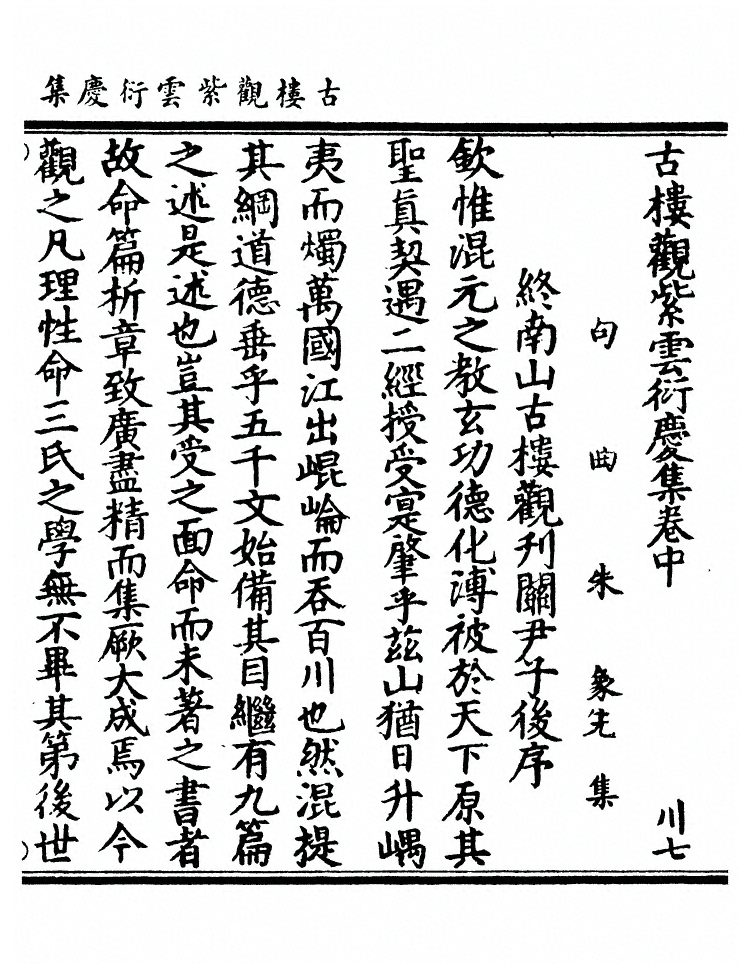 古樓觀紫雲衍慶集
古樓觀紫雲衍慶集卷中
川七
句曲朱象先集
終南山古樓觀刋關尹子後序
欽惟混元之教玄功德化溥被於天下原其
聖眞契遇二經授受寔肇乎茲山猶日升嵎
夷而燭萬國江出崐崘而吞百川也然混提
其綱道德垂乎五千文始備其目繼有九篇
之述是述也豈其受之面命而未著之書者
故命篇析章致廣盡精而集厥大成焉以今
觀之凡理性命三氏之學無不畢其第後世